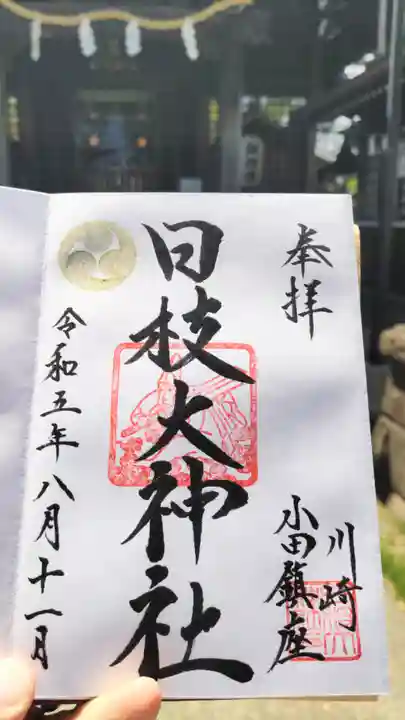 奉拝
川崎
小田鎮座
日枝大神社
令和五年八月十一月